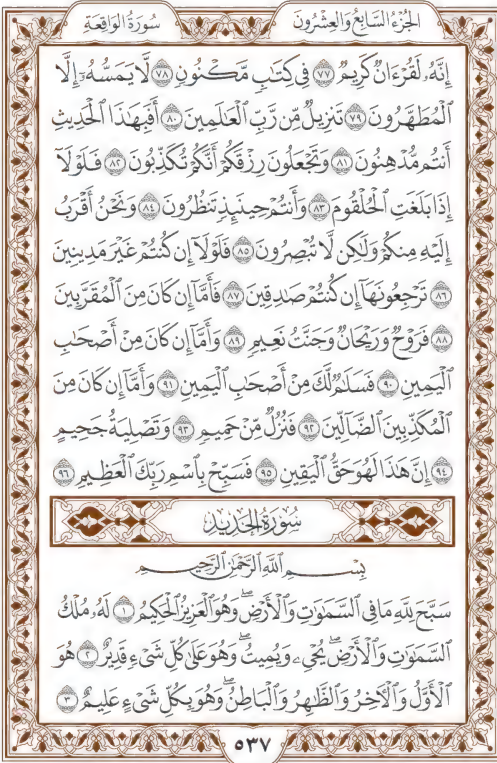 الجُزْءُ السَّابِعُ وَالعِشْرُونَ سُورَةُ الوَاقِعَةِ
إِنَّهُۥ لَقُرْءَانٌ كَرِيمٌ ٧٧ فِى كِتَٰبٍ مَّكْنُونٍ ٧٨ لَّا يَمَسُّهُۥٓ إِلَّا
ٱلْمُطَهَّرُونَ ٧٩ تَنزِيلٌ مِّن رَّبِّ ٱلْعَٰلَمِينَ ٨٠ أَفَبِهَٰذَا ٱلْحَدِيثِ
أَنتُم مُّدْهِنُونَ ٨١ وَتَجْعَلُونَ رِزْقَكُمْ أَنَّكُمْ تُكَذِّبُونَ ٨٢ فَلَوْلَآ
إِذَا بَلَغَتِ ٱلْحُلْقُومَ ٨٣ وَأَنتُمْ حِينَئِذٍ تَنظُرُونَ ٨٤ وَنَحْنُ أَقْرَبُ
إِلَيْهِ مِنكُمْ وَلَٰكِن لَّا تُبْصِرُونَ ٨٥ فَلَوْلَآ إِن كُنتُمْ غَيْرَ مَدِينِينَ
٨٦ تَرْجِعُونَهَآ إِن كُنتُمْ صَٰدِقِينَ ٨٧ فَأَمَّآ إِن كَانَ مِنَ ٱلْمُقَرَّبِينَ
٨٨ فَرَوْحٌ وَرَيْحَانٌ وَجَنَّتُ نَعِيمٍ ٨٩ وَأَمَّآ إِن كَانَ مِنْ أَصْحَٰبِ
ٱلْيَمِينِ ٩٠ فَسَلَٰمٌ لَّكَ مِنْ أَصْحَٰبِ ٱلْيَمِينِ ٩١ وَأَمَّآ إِن كَانَ مِنَ
ٱلْمُكَذِّبِينَ ٱلضَّآلِّينَ ٩٢ فَنُزُلٌ مِّنْ حَمِيمٍ ٩٣ وَتَصْلِيَةُ جَحِيمٍ
٩٤ إِنَّ هَٰذَا لَهُوَ حَقُّ ٱلْيَقِينِ ٩٥ فَسَبِّحْ بِٱسْمِ رَبِّكَ ٱلْعَظِيمِ ٩٦
سُورَةُ الحَدِيدِ
بِسْمِ ٱللَّهِ ٱلرَّحْمَٰنِ ٱلرَّحِيمِ
سَبَّحَ لِلَّهِ مَا فِى ٱلسَّمَٰوَٰتِ وَٱلْأَرْضِ ۖ وَهُوَ ٱلْعَزِيزُ ٱلْحَكِيمُ ١ لَهُۥ مُلْكُ
ٱلسَّمَٰوَٰتِ وَٱلْأَرْضِ ۖ يُحْىِۦ وَيُمِيتُ ۖ وَهُوَ عَلَىٰ كُلِّ شَىْءٍ قَدِيرٌ ٢ هُوَ
ٱلْأَوَّلُ وَٱلْءَاخِرُ وَٱلظَّٰهِرُ وَٱلْبَاطِنُ ۖ وَهُوَ بِكُلِّ شَىْءٍ عَلِيمٌ ٣
٥٣٧